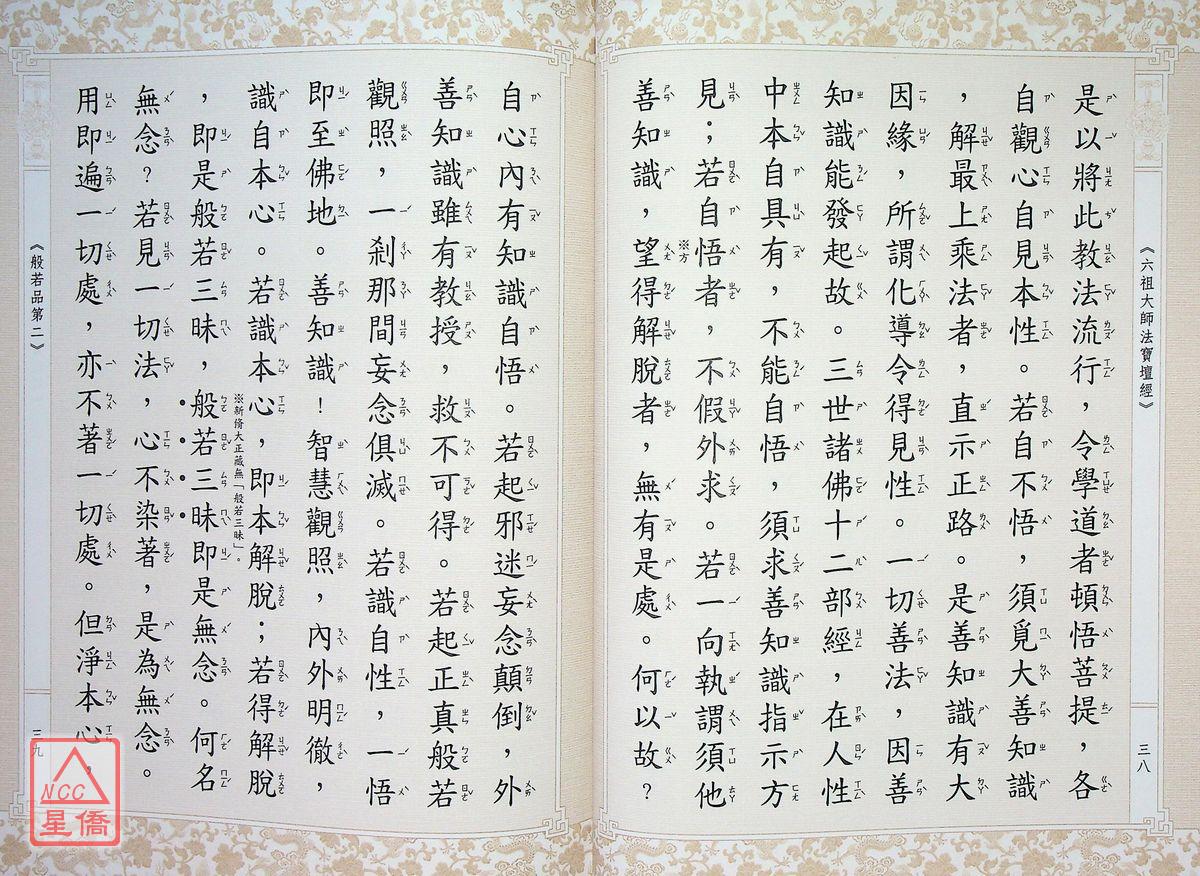 《六祖大師法寶壇經》
三八
是以將此教法流行，令學道者頓悟菩提，各
自觀心自見本性。若自不悟，須覓大善知識
，解最上乘法者，直示正路。是善知識有大
因緣，所謂化導令得見性。一切善法，因善
知識能發起故。三世諸佛十二部經，在人性
中本自具有，不能自悟，須求善知識指示方
見；若自悟者，不假外求。若一向執謂須他
※方
善知識，望得解脫者，無有是處。何以故？
自心內有知識自悟。若起邪迷妄念顛倒，外
善知識雖有教授，救不可得。若起正真般若
觀照，一剎那間妄念俱滅。若識自性，一悟
即至佛地。善知識！智慧觀照，內外明徹，
識自本心。若識本心，即本解脫；若得解脫
※新脩大正藏無「般若三昧」。
，即是般若三昧，般若三昧即是無念。何名
無念？若見一切法，心不染著，是為無念。
用即遍一切處，亦不著一切處。但淨本心，
《般若品第二》
三九
NCC
星僑